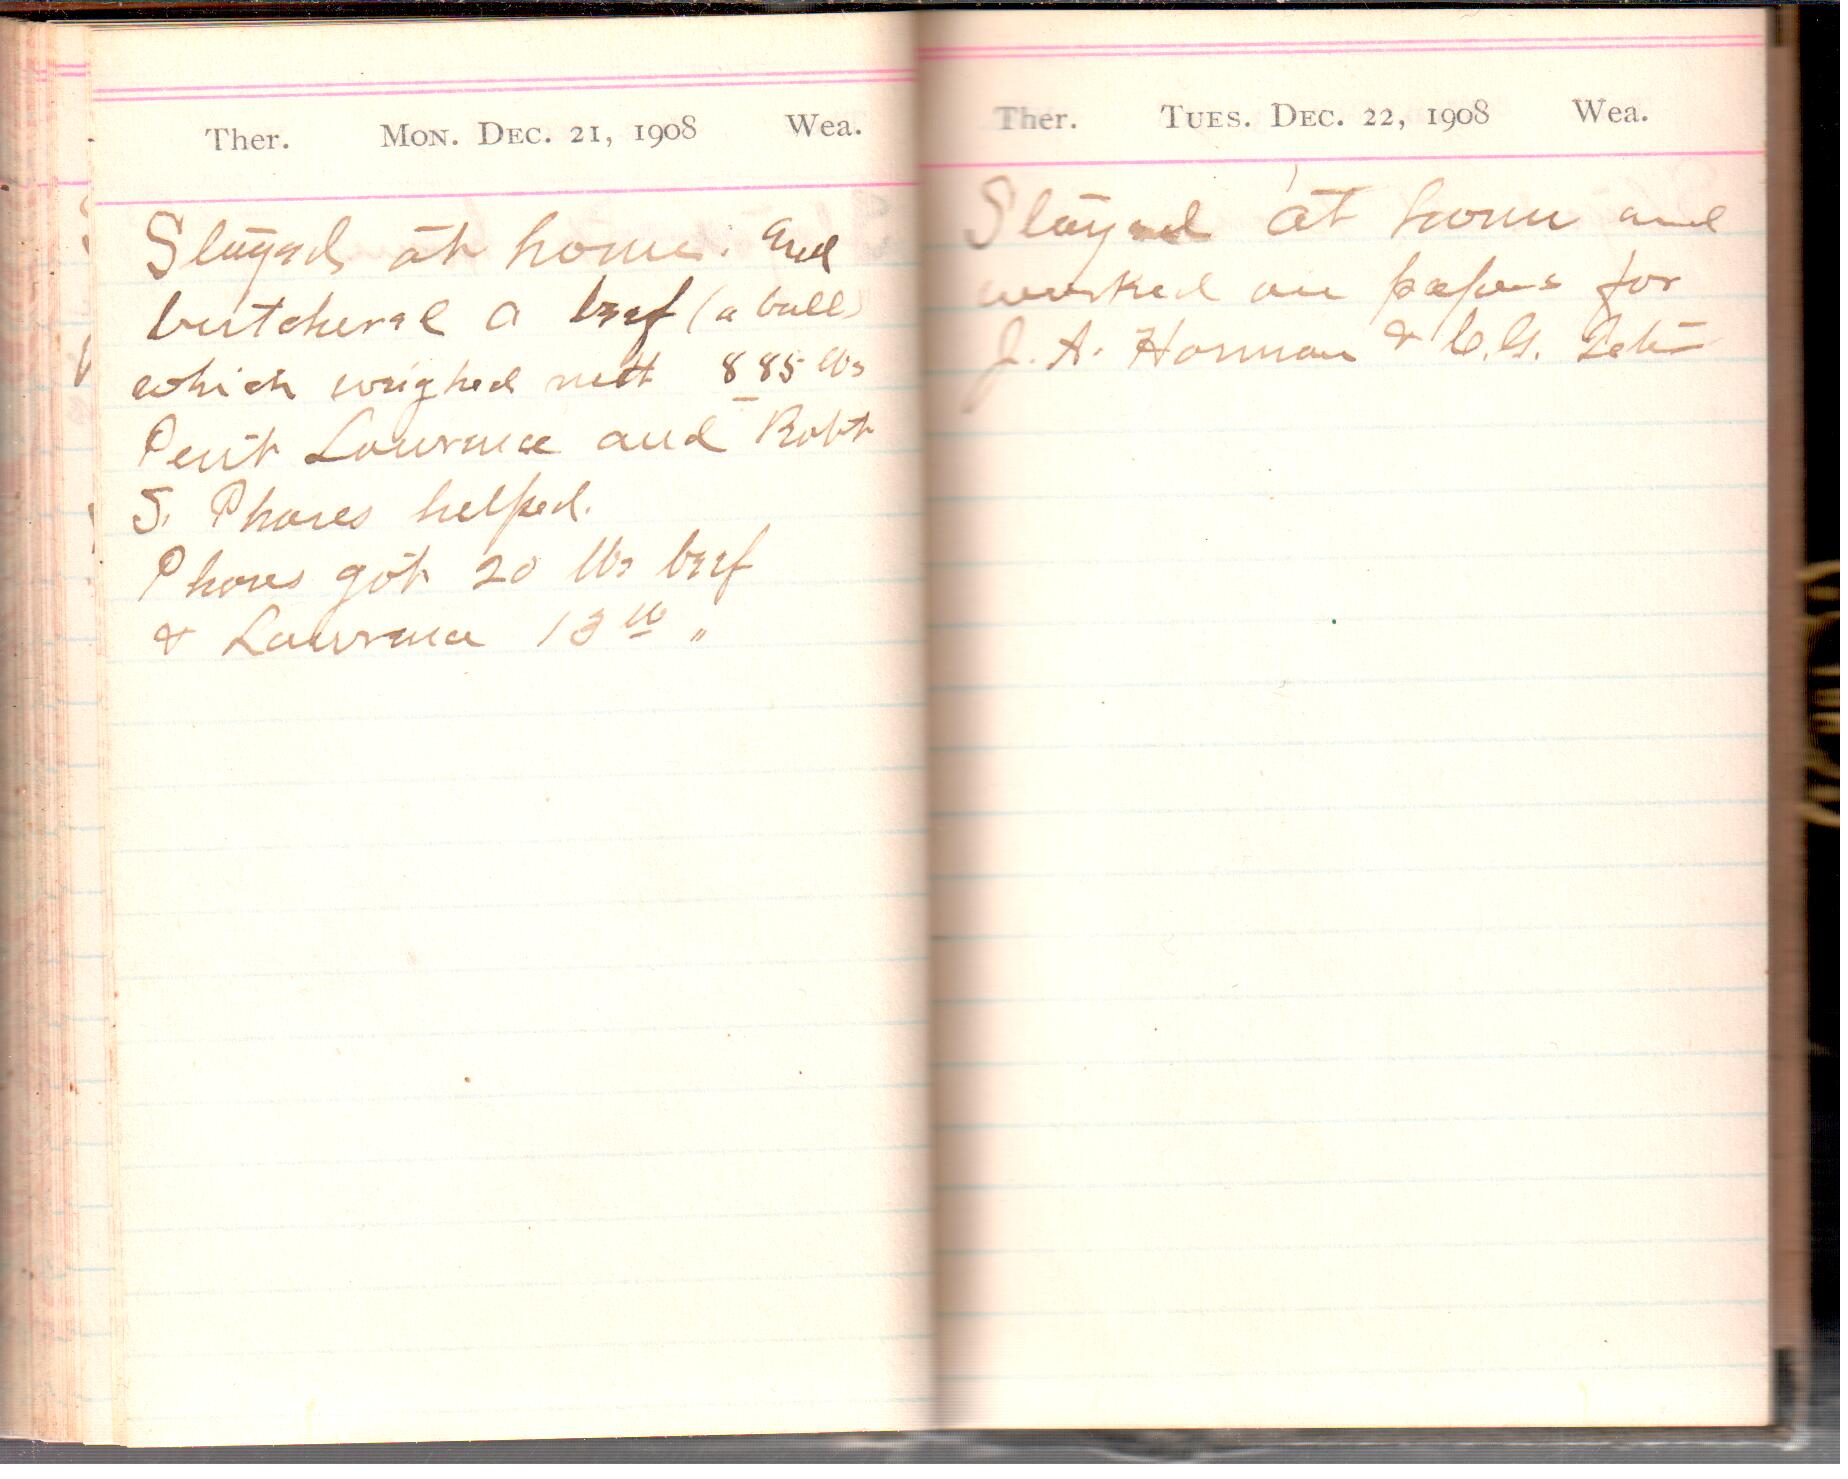 Ther. Mon. Dec. 21, 1908 Wea.
Stayed at home. and
butchered a beef (a bull)
which weighed nett 885 lbs
Lawrence and Robt
S. Phares helped.
Phares got 20 lbs beef
& Lawrence 13 lb "
Ther. Tues. Dec. 22, 1908 Wea.
Stayed at home and
worked on papers for
J. A. Horman & C. G.